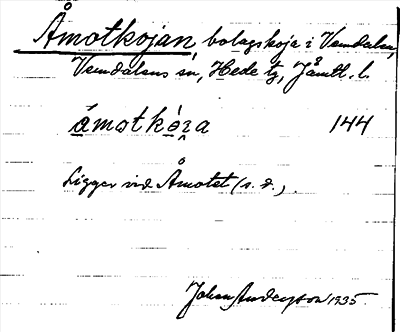 Åmotkojan, bolagskoja i Vemdalen,
Vemdalens sn, Hede tg, Jämtl. l.
åmotkòza 144
Ligger vid Åmotet (s. d.).
Johan Anderson 1935.